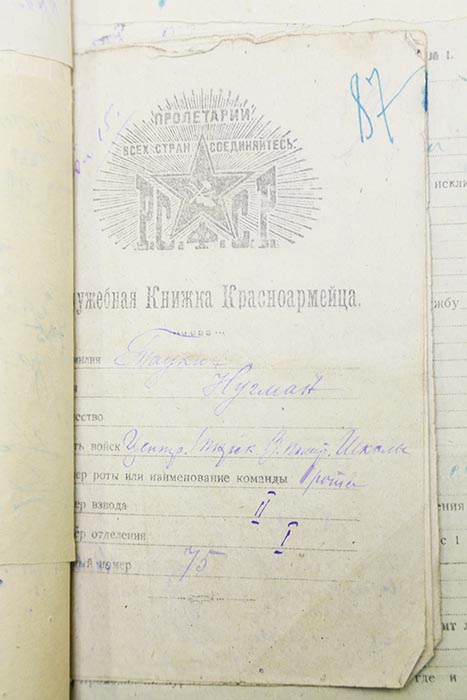 87
ПРОЛЕТАРИИ
ВСЕХ СТРАН СОЕДИНЯЙТЕСЬ.
Р.С.Ф.С.Р.
ужебная Книжка Красноармейца.
милия Таукин
Нугман
ество
ть войск Центр. В. полит. Школы
ер роты или наименование команды рота
ер взвода II
ер отделения I
ный номер 75